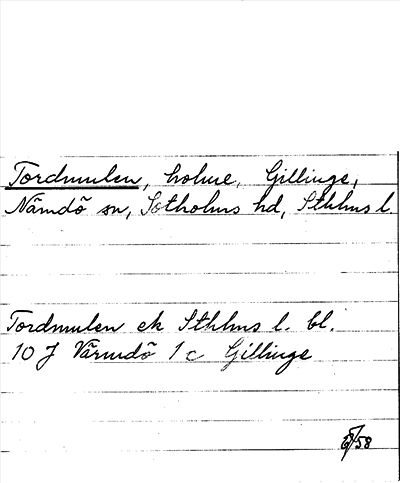 Tordmulen, holme, Gillinge,
Nämdö sn, Sotholms hd, Sthlms l.
Tordmulen ek Sthlms l. bl.
10 J Värmdö 1 c Gillinge